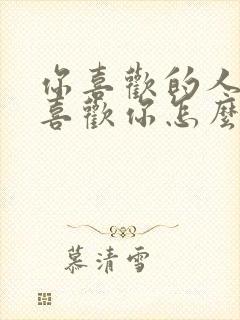 你喜歡的人
喜歡你怎麼
慕清雪